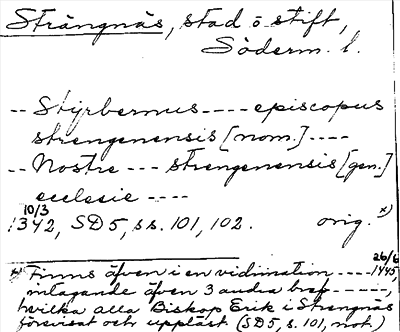 Strängnäs, stad o stift,
Söderm. l.
-- Styrbernus ---- episcopus
strengenensis [nom.] ----
-- Nostre --- strengenensis [gen.]
ecclesie ----
10/3
1342, SD 5, ss. 101, 102. orig. x)
26/6
x) Finns äfven i en vidimation ---- 1445,
intagande äfven 3 andra bref -----,
hvilka alla Biskop Erik i Strengnäs
förevisat och uppläst (SD 5, s. 101, not.)